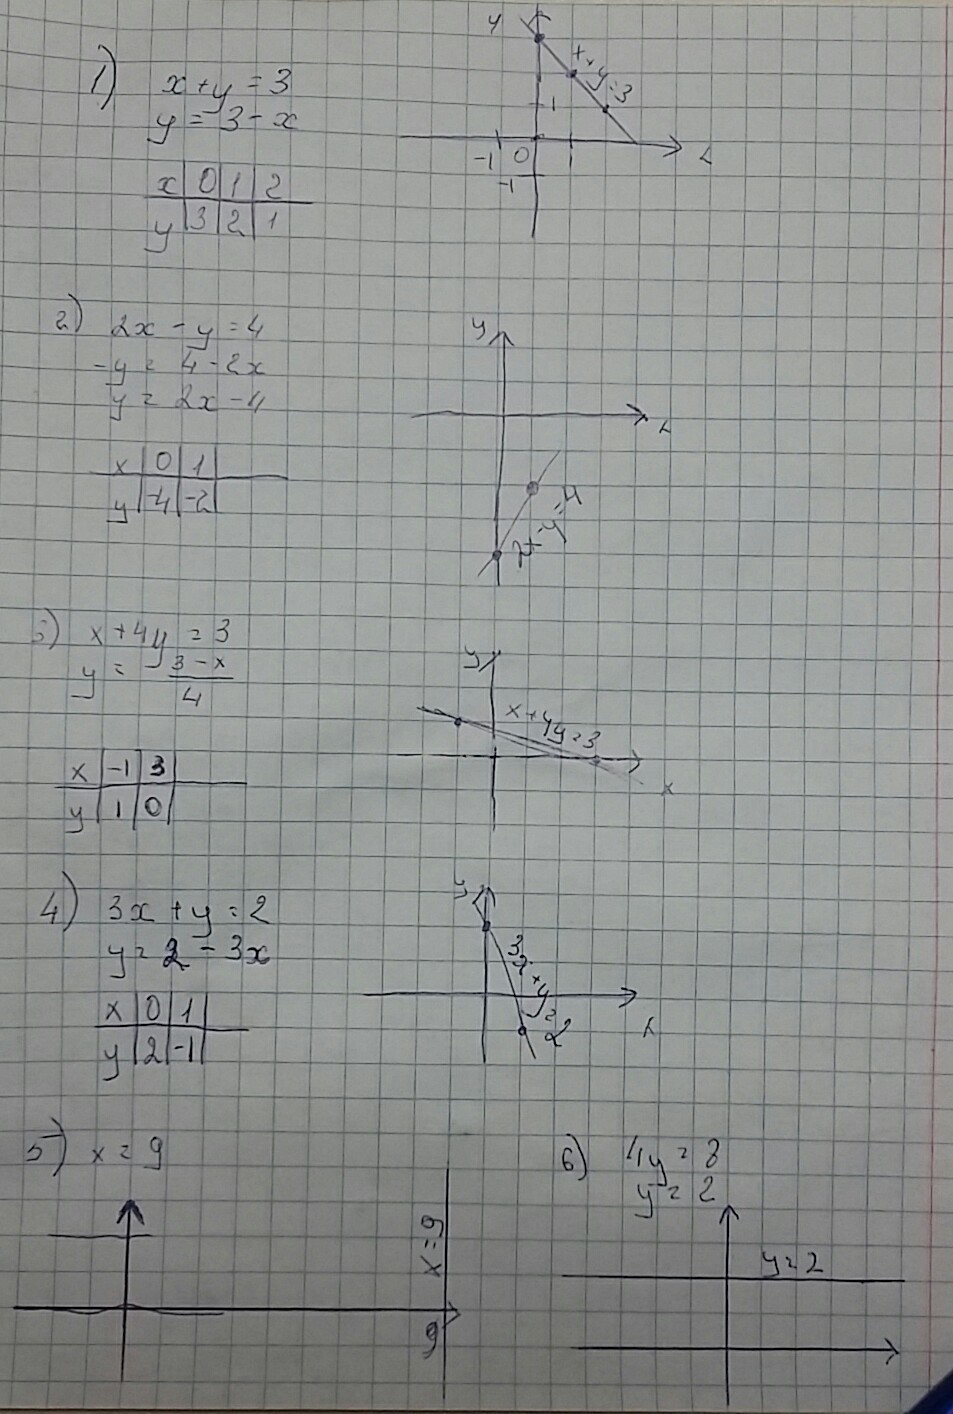 1) x + y = 3
y = 3 - x
x 0 1 2
y 3 2 1
y
x+y=3
1
-1 0
-1
2) 2x - y = 4
-y = 4 - 2x
y = 2x - 4
x 0 1
y -4 -2
y
x
2x-y=4
3) x + 4y = 3
y = 3 - x
4
x -1 3
y 1 0
y
x+4y=3
x
4) 3x + y = 2
y = 2 - 3x
x 0 1
y 2 -1
y
3x+y=2
x
5) x = 9
x=9
9
6) 4y = 8
y = 2
y=2